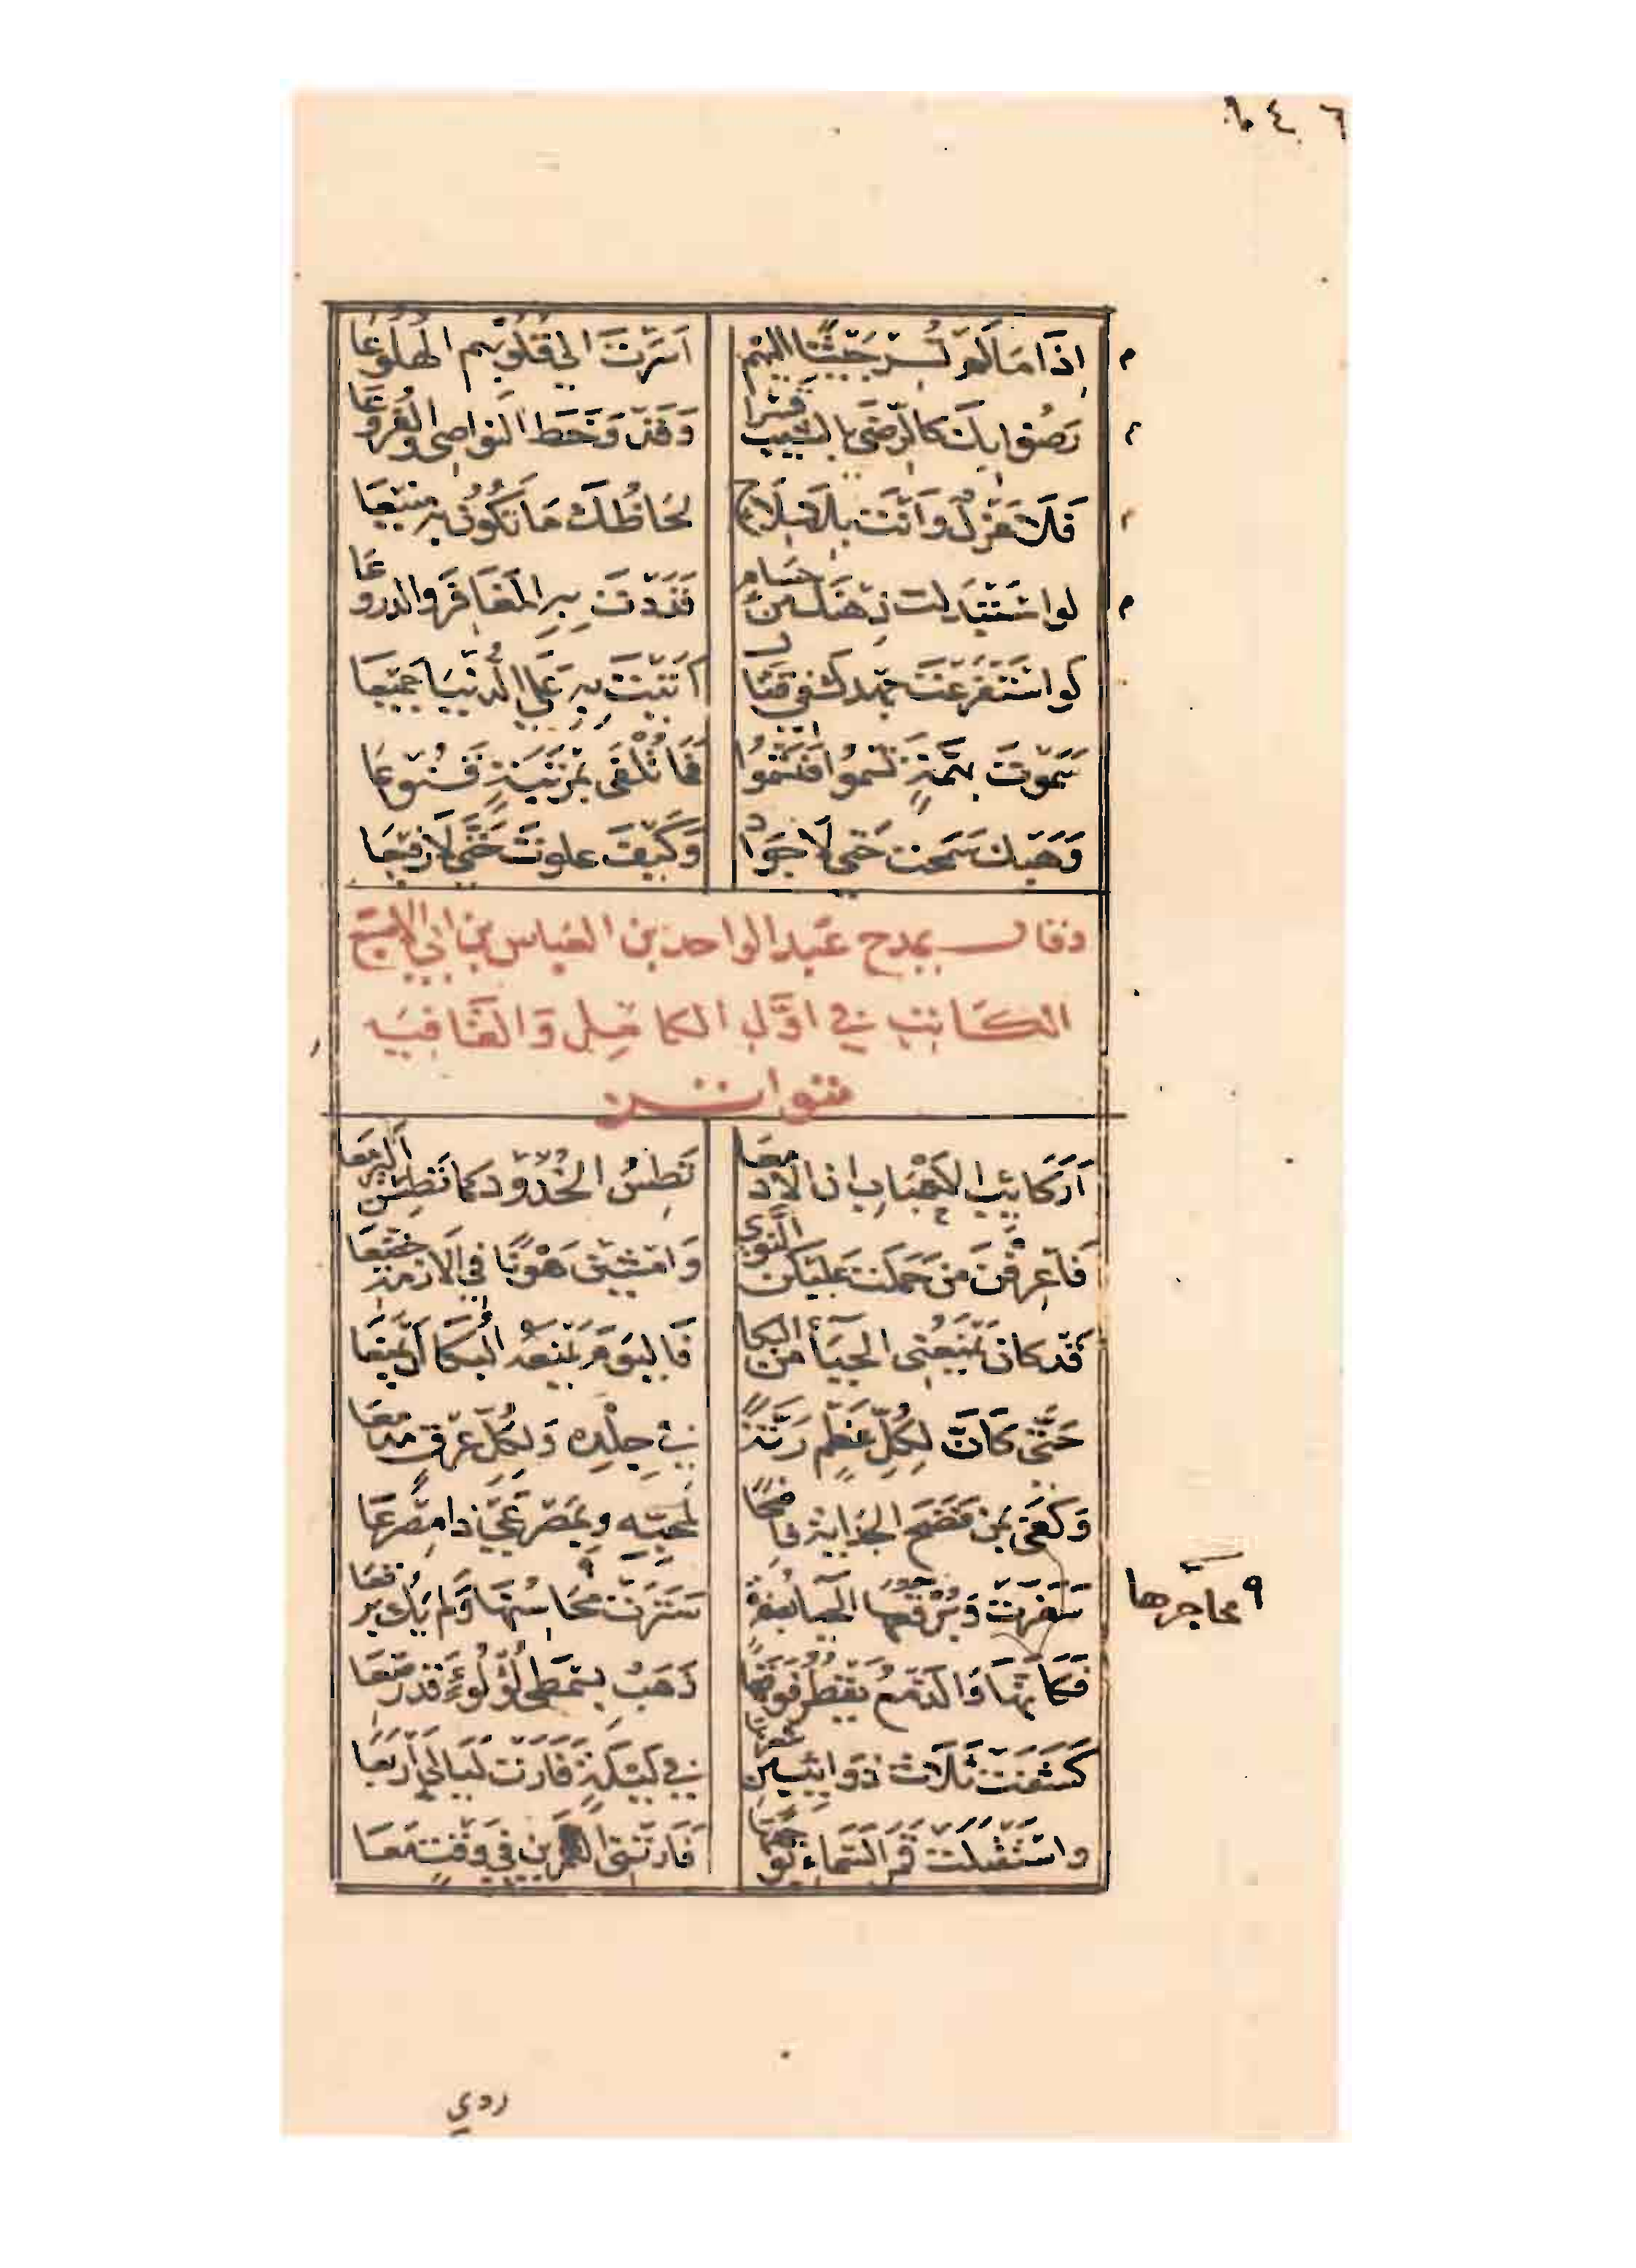 إِذَا مَا لَمْ تُسِرْ جَيْشًا إِلَيْهِم أَسَرْتَ إلى قُلُوبِهِم الهُلُوعَا
رَضُوا بِكَ كالرِّضَى بالشَّيْبِ قَسْرًا وَقَدْ وَخَطَ النواصِيَ والفُرُوعَا
فَلَا عَزَلٌ وَأَنْتَ بِلَا سِلَاحٍ لحَاظُكَ مَا تَكُونُ بِهِ مَنِيعَا
لو اسْتَبْدَلْتَ ذِهْنَكَ من حُسَامٍ قَدَدْتَ بِهِ المَغَافِرَ والدروعَا
لَو اسْتَفْرَغْتَ جهدك في قتال أتَيْتَ بِهِ عَلَى الدُّنْيَا جَمِيعَا
سَمَوْتَ بهِمَّةٍ تَسْمُو فَتَسْمُو فَمَا تُلْفَى بِمَرْتَبَةٍ قَنُوعَا
وَهَبْكَ سَمَحْتَ حَتَّى لَا جَوَادٌ وَكَيْفَ علوتَ حَتَّى لَا رَفِيعَا
وقال يمدح عَبد الواحد بن العَباس بن ابي الاصبع
الكَاتب في اوَّل الكامِل وَالقَافيَه
متواتر
أَرَكَائِبَ الأَحْبَابِ ان الأدمعَا تَطِسُ الخُدُودَ كما تَطِسْنَ اليَرْمَعَا
فَاعْرِفْنَ مَنْ حَمَلَتْ عَلَيْكُنَّ النَّوَى وَامْشِينَ هَوْنًا في الأزمة خضعَا
قَد كانَ يَمْنَعُنِي الحَيَاءُ من البكا فَاليَوْمَ يَمْنَعُهُ البُكَا أَن يَمْنَعَا
حَتَّى كَأَنَّ لِكُلِّ عَظْمٍ رَنَّةً في جِلْدِهِ وَلِكُلِّ عِرْقٍ مدمعَا
وَكَفَى بِمَنْ فَضَحَ الجدَايةَ فاضحًا لمُحِبِّهِ وبِمَصْرَعِي ذا مصْرَعَا
سَفَرَتْ وَبَرْقَعَهَا الحَيَا بصُفرة سَتَرَتْ مَحَاسِنَهَا وَلم يَكُ برقعَا
٩ محاجرها
فَكَأَنَّهَا وَالدَّمْعُ يَقْطُرُ فَوْقَهَا ذَهَبٌ بِسِمْطَيْ لُؤْلُؤٍ قَد رصعَا
كَشَفَتْ ثَلَاثَ ذَوَائِبٍ من شعرها في لَيْلَةٍ فَأَرَتْ لَيَالِيَ أَرْبَعَا
واسْتَقْبَلَتْ قَمَرَ السَّمَاءِ بوجهها فَأَرَتْنِيَ القمرين في وَقْتٍ مَعَا
ردي